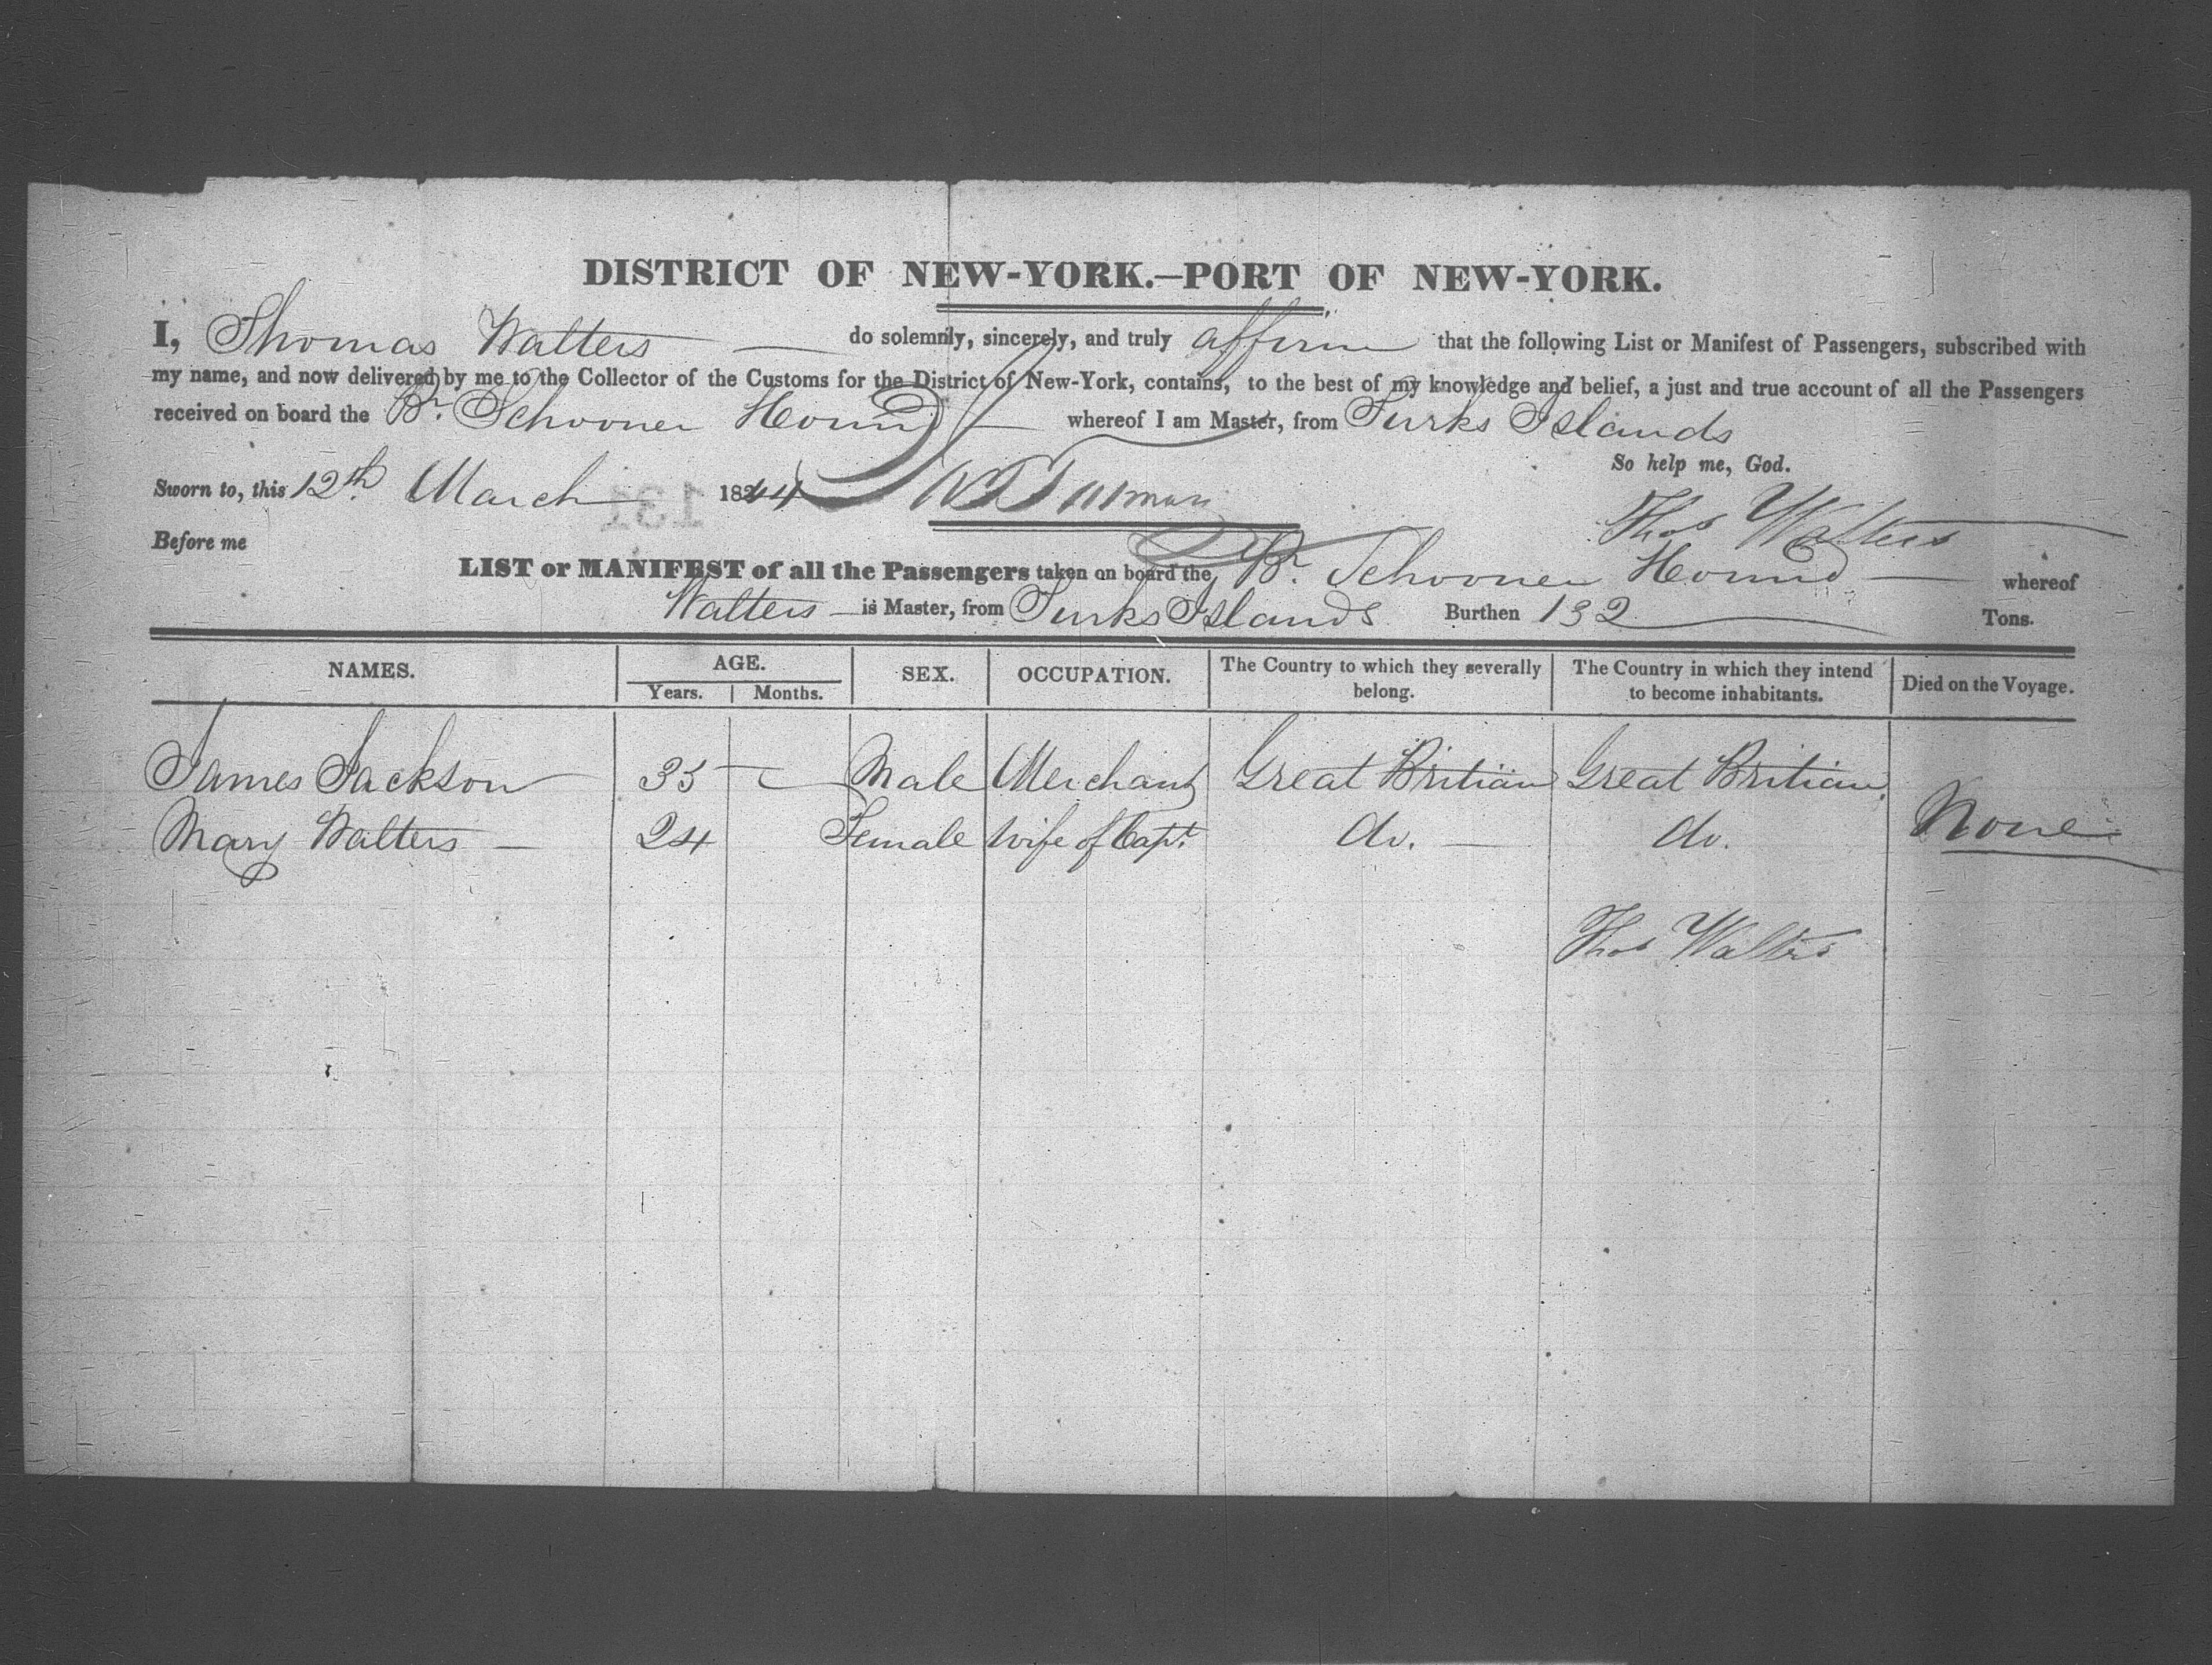 DISTRICT OF NEW-YORK.—PORT OF NEW-YORK.
I, Thomas Walters — do solemnly, sincerely, and truly affirm that the following List or Manifest of Passengers, subscribed with
my name, and now delivered by me to the Collector of the Customs for the District of New-York, contains, to the best of my knowledge and belief, a just and true account of all the Passengers
received on board the Br. Schooner Hound — whereof I am Master, from Turks Islands
So help me, God.
Sworn to, this 12th March 1844
131
Thos Walters
Before me
LIST or MANIFEST of all the Passengers taken on board the Br. Schooner Hound — whereof
Walters — is Master, from Turks Islands Burthen 132 Tons.
NAMES. AGE. SEX. OCCUPATION. The Country to which they severally belong. The Country in which they intend to become inhabitants. Died on the Voyage.
Years. Months.
James Jackson 35 — Male Merchant Great Britian Great Britian
Mary Walters — 24 Female Wife of Capt. do. — do. None
Thos Walters